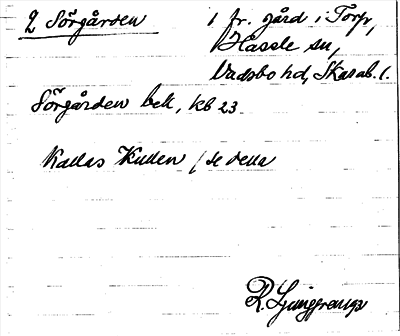 2 Sörgården
1 fr. gård i Torp,
Hassle sn,
Vadsbo hd, Skarab. l.
Sörgården bel., kb 23
Kallas Kullen / se detta
R. Ljunggren